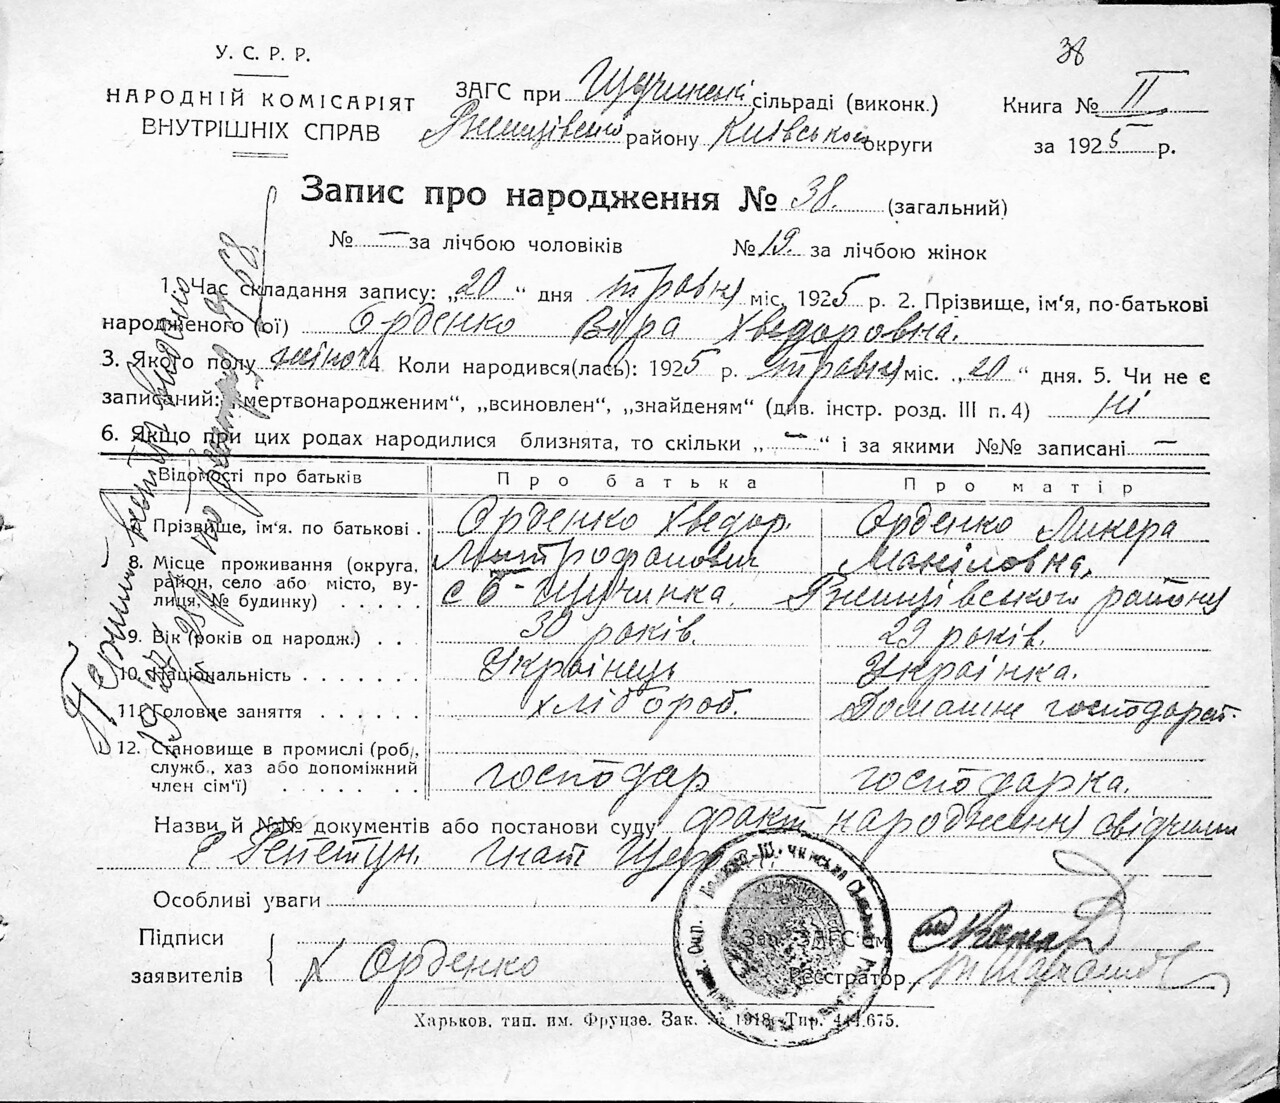 38
У. С. Р. Р.
НАРОДНІЙ КОМІСАРІЯТ
ВНУТРІШНІХ СПРАВ
ЗАГС при Щучинські сільраді (виконк.)
Ржищівсько району Київської округи
Книга № II
за 1925 р.
Запис про народження № 38. (загальний)
№ — за лічбою чоловіків № 19. за лічбою жінок
1. Час складання запису: „20" дня травня міс. 1925 р. 2. Прізвище, ім'я, по-батькові
народженого (ої) Орденко Віра Хведоровна.
3. Якого полу жіноч 4 Коли народився(лась): 1925 р. травня міс. „20" дня. 5. Чи не є
записаний: „мертвонародженим", „всиновлен", „знайденям" (див. інстр. розд. III п. 4) ні
6. Якщо при цих родах народилися близнята, то скільки „—" і за якими №№ записані —
Відомості про батьків Про батька Про матір
Прізвище, ім'я. по батькові . Орденко Хведор. Орденко Ликера
Митрофанович Маніловна.
8. Місце проживання (округа, район, село або місто, вулиця, № будинку) . . . . . с Б-Щучинка. Ржищівського району
9. Вік (років од народж.) . . 30 років. 29 років.
10. Національність . . . . . . . Українець Українка.
11. Головне заняття . . . . . . хлібороб. Домашне господарст.
12. Становище в промислі (роб., служб., хаз або допоміжний член сім'ї) . . . . . . . господар господарка.
Назви й №№ документів або постанови суду факт народження свідчит
Гнат
Особливі уваги
Підписи
заявителів
Орденко
Зав. ЗАГС'ом
Реєстратор
Харьков. тип. им. Фрунзе. Зак. № 1918. Тир. 444.675.